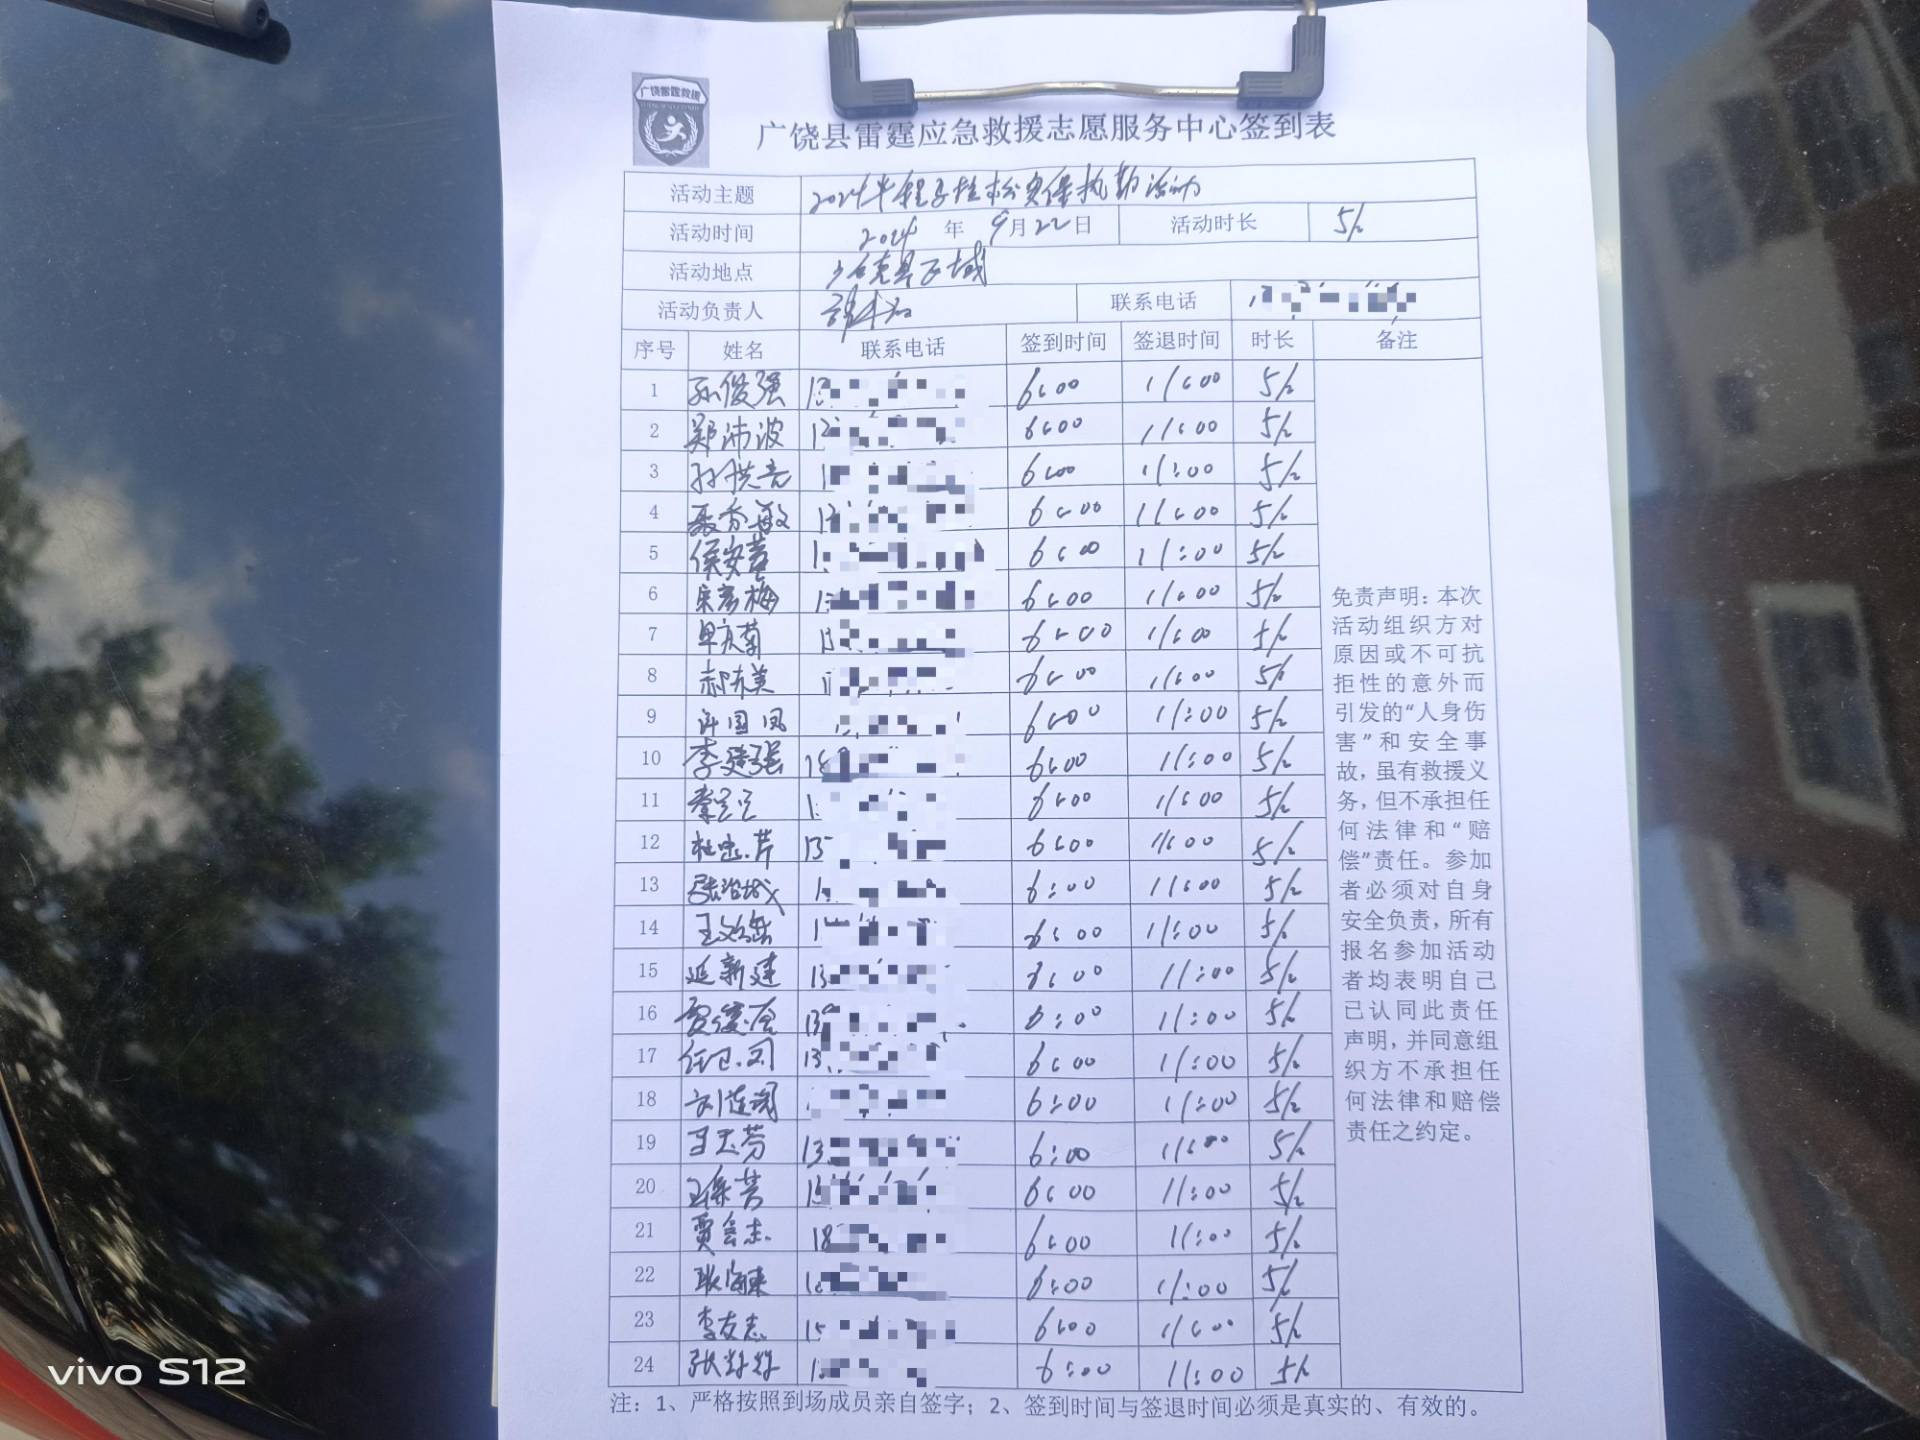 广饶雷霆救援
广饶县雷霆应急救援志愿服务中心签到表
活动主题 2024半程马拉松安保执勤活动
活动时间 2024 年 9月22日 活动时长 5h
活动地点 广饶县区域
活动负责人 联系电话
序号 姓名 联系电话 签到时间 签退时间 时长 备注
1 孙俊强 6:00 11:00 5h
2 郑沛波 6:00 11:00 5h
3 孙洪亮 6:00 11:00 5h
4 聂秀敏 6:00 11:00 5h
5 侯安 6:00 11:00 5h
6 宋彦梅 6:00 11:00 5h
7 单庆菊 6:00 11:00 5h
8 郝东美 6:00 11:00 5h
9 许国凤 6:00 11:00 5h
10 李建强 6:00 11:00 5h
11 6:00 11:00 5h
12 杜忠芹 6:00 11:00 5h
13 6:00 11:00 5h
14 6:00 11:00 5h
15 延新建 6:00 11:00 5h
16 贾 6:00 11:00 5h
17 任卫 6:00 11:00 5h
18 刘莲阁 6:00 11:00 5h
19 王玉芬 6:00 11:00 5h
20 6:00 11:00 5h
21 贾会志 6:00 11:00 5h
22 耿海 6:00 11:00 5h
23 李友志 6:00 11:00 5h
24 张 6:00 11:00 5h
免责声明：本次
活动组织方对
原因或不可抗
拒性的意外而
引发的“人身伤
害”和安全事
故，虽有救援义
务，但不承担任
何法律和“赔
偿”责任。参加
者必须对自身
安全负责，所有
报名参加活动
者均表明自己
已认同此责任
声明，并同意组
织方不承担任
何法律和赔偿
责任之约定。
注：1、严格按照到场成员亲自签字；2、签到时间与签退时间必须是真实的、有效的。
vivo S12